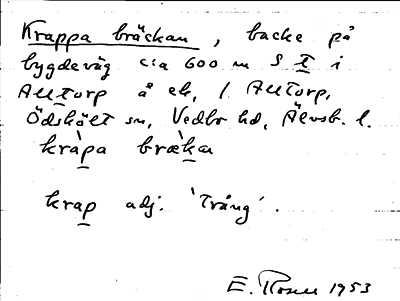 Krappa bräckan, backe på
bygdeväg c:a 600 m S T i
Alltorp å ek, / Alltorp,
Ödskölt sn, Vedbo hd, Älvsb. l.
kràpa bræ̀ka
krap adj. 'trång'.
E. Rosell 1953